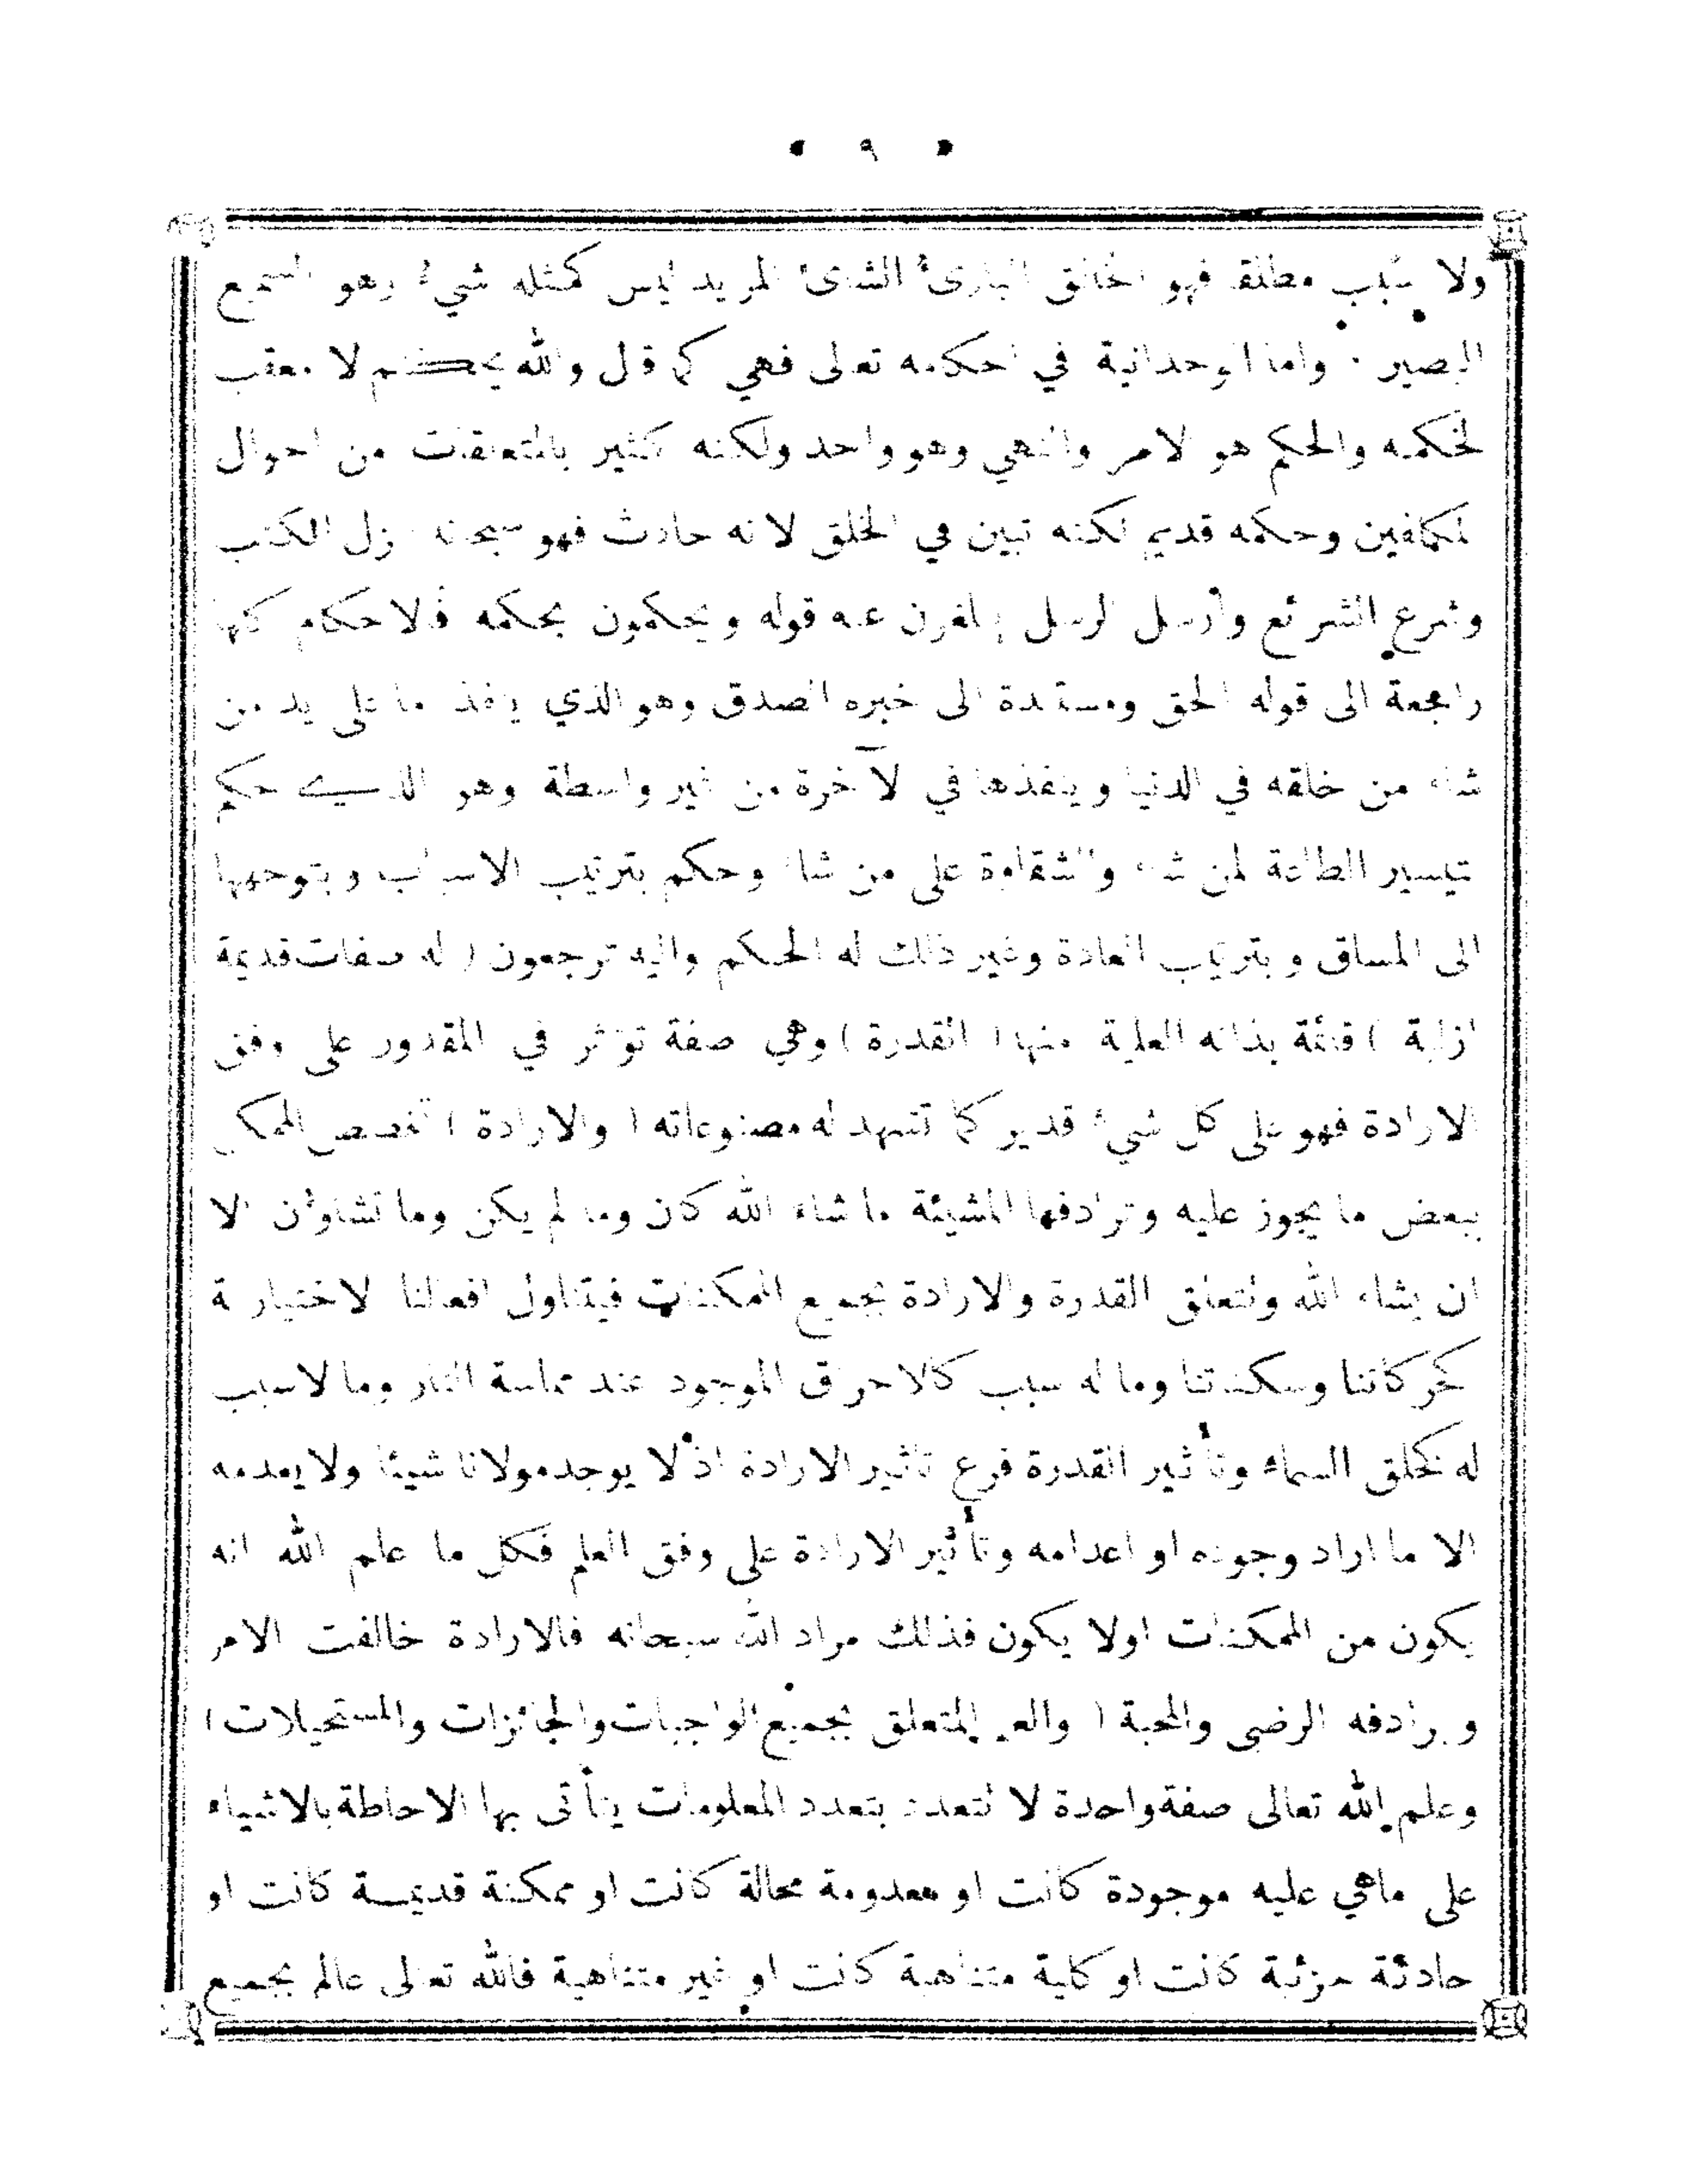 • ٩ •
ولا سبب مطلقا فهو الخالق البارئ الشائ المريد ليس كمثله شيء وهو السميع
البصير . واما الوحدانية في احكامه تعالى فهي كما قال والله يحكم لا معقب
لحكمه والحكم هو الامر والنهي وهو واحد ولكنه كثير بالمتعلقات من احوال
المكلفين وحكمه قديم لكنه تبين في الخلق لا نه حادث فهو سبحانه نزل الكتب
وشرع الشرائع وأرسل الرسل يبلغون عنه قوله ويحكمون بحكمه فالاحكام كلها
راجعة الى قوله الحق ومستندة الى خبره الصدق وهو الذي ينفذها على يد من
شاء من خلقه في الدنيا وينفذها في الآخرة من غير واسطة وهو الذي حكم
بتيسير الطاعة لمن شاء والشقاوة على من شاء وحكم بترتيب الاسباب وبتوجهها
الى المساق وبترتيب العادة وغير ذلك له الحكم واليه ترجعون ( له صفات قديمة
ازلية ) قائمة بذاته العلية منها ( القدرة ) وهي صفة تؤثر في المقدور على وفق
الارادة فهو على كل شيء قدير كما تشهد له مصنوعاته ( والارادة ) تخصص الممكن
ببعض ما يجوز عليه وترادفها المشيئة ما شاء الله كان وما لم يكن وما تشاؤن الا
ان يشاء الله وتتعلق القدرة والارادة بجميع الممكنات فيتناول افعالنا الاختيارية
كحركاتنا وسكناتنا وما له سبب كالاحراق الموجود عند مماسة النار وما لا سبب
له كخلق السماء وتأثير القدرة فرع تاثير الارادة اذ لا يوجد مولانا شيئا ولا يعدمه
الا ما اراد وجوده او اعدامه وتأثير الارادة على وفق العلم فكل ما علم الله انه
يكون من الممكنات اولا يكون فذلك مراد الله سبحانه فالارادة خالفت الامر
ويرادفه الرضى والمحبة ( والعلم المتعلق بجميع الواجبات والجائزات والمستحيلات )
وعلم الله تعالى صفة واحدة لا تتعدد بتعدد المعلومات يتأتى بها الاحاطة بالاشياء
على ماهي عليه موجودة كانت او معدومة محالة كانت او ممكنة قديمة كانت او
حادثة جزئية كانت او كلية متناهية كانت او غير متناهية فالله تعالى عالم بجميع